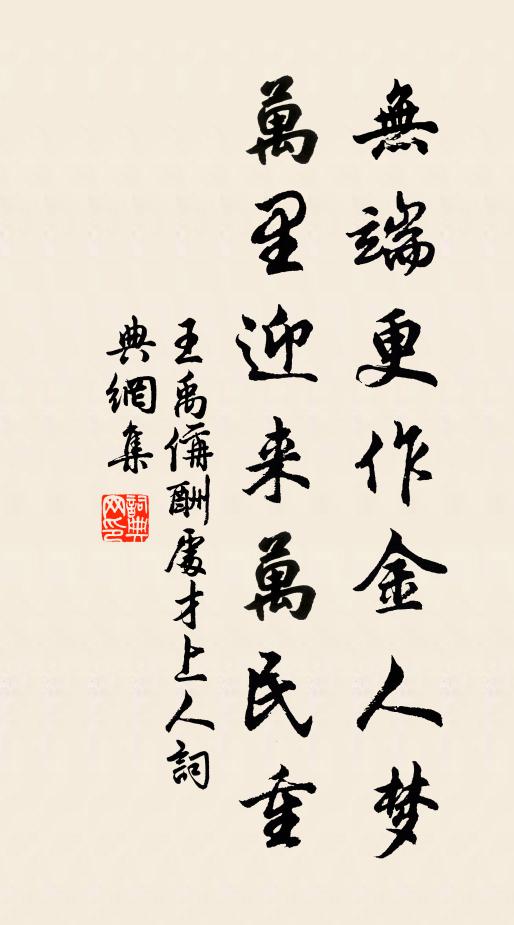 無端更作金人梦
萬里迎来萬民重
王禹偁酬處才上人詞
典網集
詞典
网印